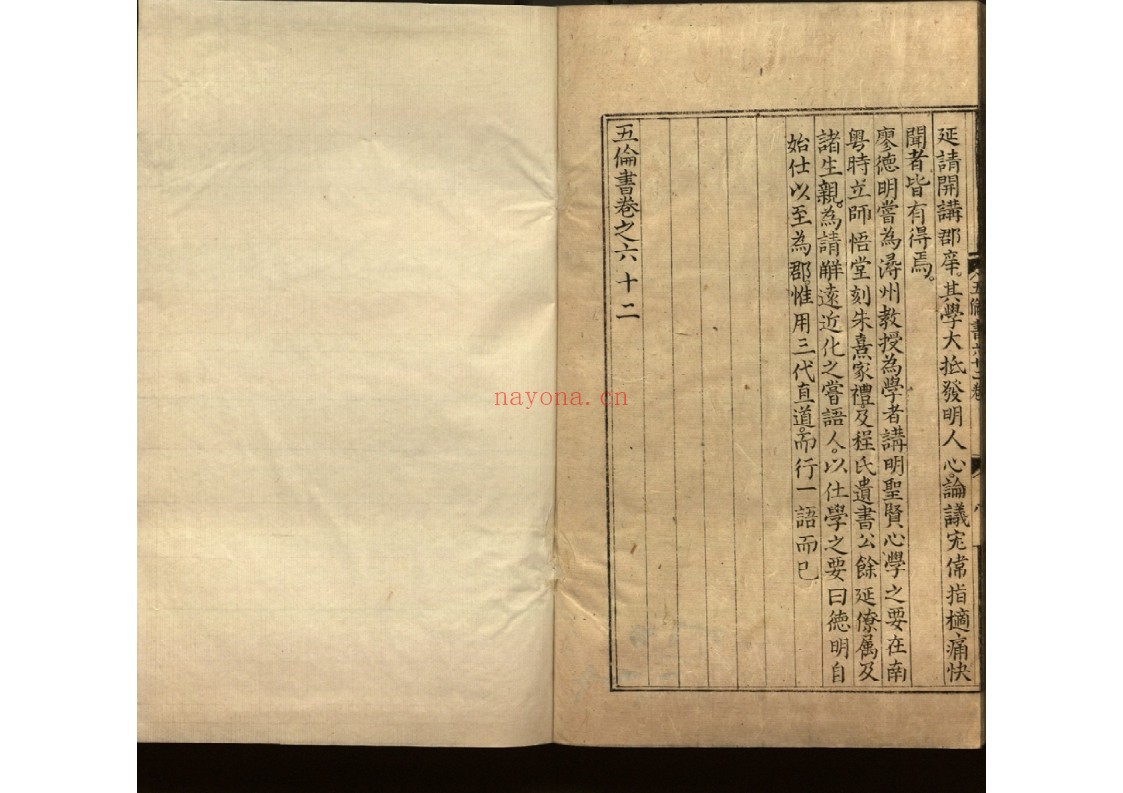 延請開講郡庠其學大抵發明人心論議宏偉指擿痛快
聞者皆有得焉
廖德明嘗為潯州教授為學者講明聖賢心學之要在南
粵時立師悟堂刻朱熹家禮及程氏遺書公餘延僚屬及
諸生親為請解遠近化之嘗語人以仕學之要曰德明自
始仕以至為郡惟用三代直道而行一語而已
五倫書卷之六十二
五倫書六十二卷
nayona.cn